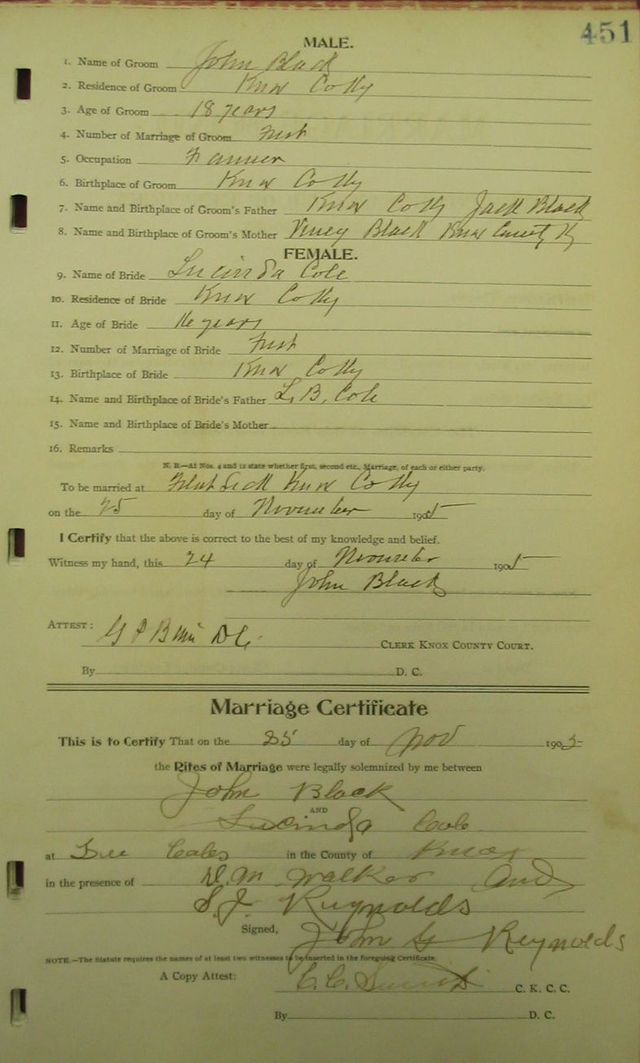 451
MALE.
1. Name of Groom John Black
2. Residence of Groom Knox Co Ky
3. Age of Groom 18 years
4. Number of Marriage of Groom First
5. Occupation Farmer
6. Birthplace of Groom Knox Co Ky
7. Name and Birthplace of Groom's Father Knox Co Ky Jack Black
8. Name and Birthplace of Groom's Mother Black Knox County Ky
FEMALE.
9. Name of Bride Lucinda Cole
10. Residence of Bride Knox Co Ky
11. Age of Bride 16 years
12. Number of Marriage of Bride First
13. Birthplace of Bride Knox Co Ky
14. Name and Birthplace of Bride's Father L. B. Cole
15. Name and Birthplace of Bride's Mother
16. Remarks
N. B.—At Nos. 4 and 12 state whether first, second etc., Marriage, of each or either party.
To be married at Knox Co Ky
on the 25 day of November 1905
I Certify that the above is correct to the best of my knowledge and belief.
Witness my hand, this 24 day of November 1905
John Black
ATTEST: D.C.
CLERK KNOX COUNTY COURT.
By D. C.
Marriage Certificate
This is to Certify That on the 25 day of Nov 1905
the Rites of Marriage were legally solemnized by me between
John Black
AND
Lucinda Cole
at in the County of Knox
in the presence of D. M. Walker and
S. J. Reynolds
Signed, John G Reynolds
NOTE.—The Statute requires the names of at least two witnesses to be inserted in the foregoing Certificate.
A Copy Attest: C. K. C. C.
By D. C.